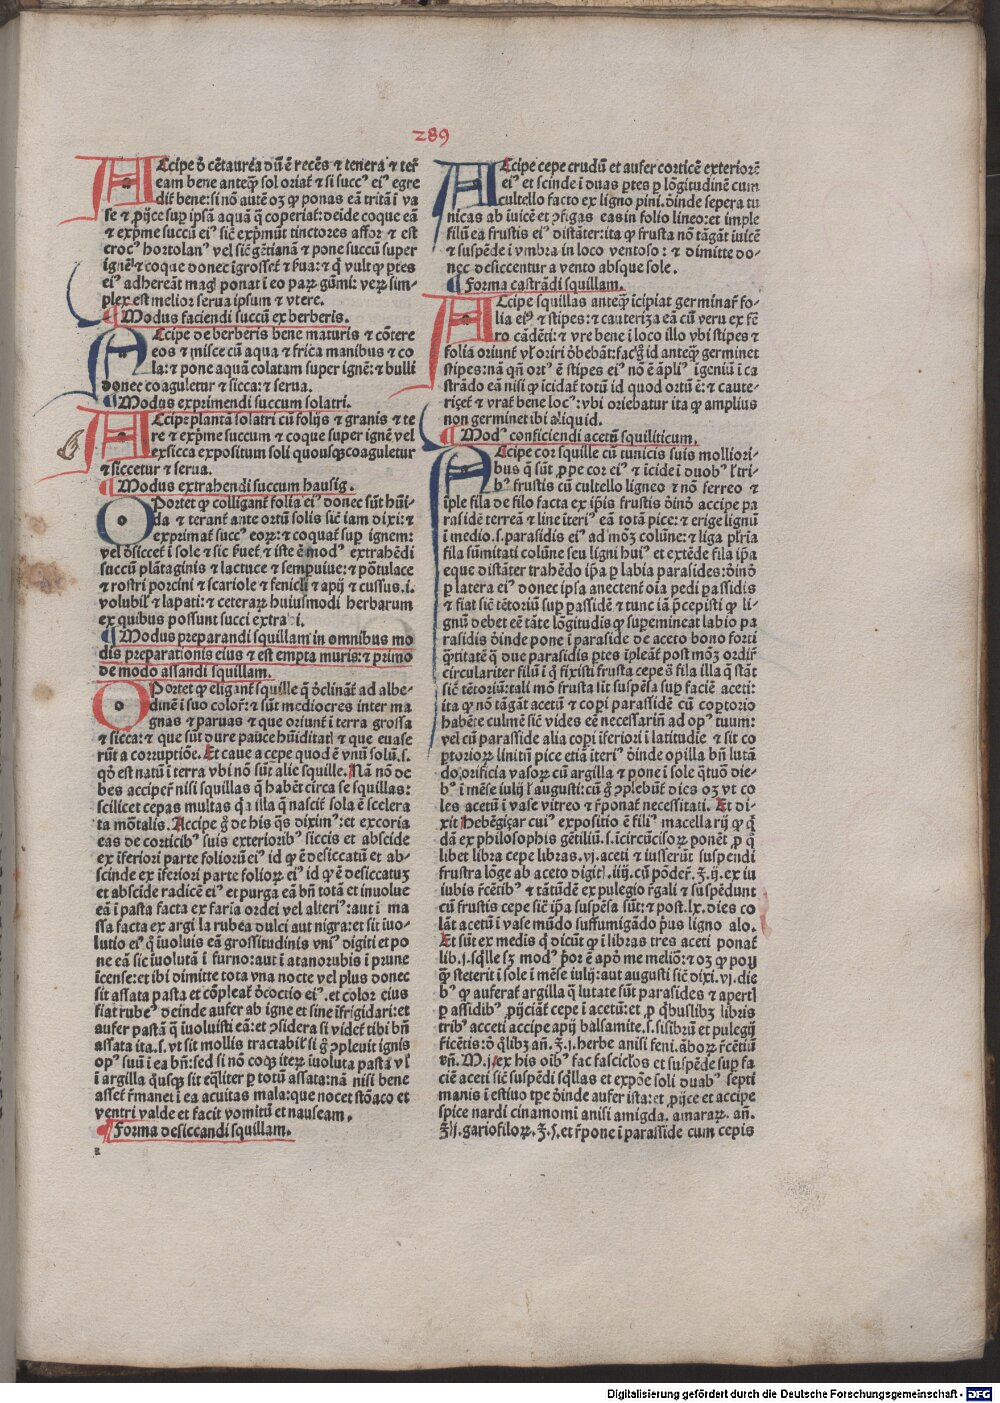 289
ACcipe ð cẽtaurea dũ ẽ recẽs ⁊ tenera ⁊ ter̃
eam bene anteq̃ʒ sol oriať ⁊ si succꝰ eiꝰ egre
diť bene: si nõ autẽ oʒ ꝙ ponas eã tritã ĩ va
se ⁊ ꝓijce suꝑ ipsã aquã q̃ coperiať: deĩde coque eã
⁊ exp̃me succũ eiꝰ sič exp̃mũt tinctores affoꝝ ⁊ est
crocꝰ hortolanꝰ vel sič gẽtianã ⁊ pone succũ super
ignẽ ⁊ coque donec ĩgrosseť ⁊ ẜua: ⁊ q̃ vult ꝙ ꝑtes
eiꝰ adhereãt magꝭ ponat ĩ eo paꝝ gũmi: veꝝ sim-
plex est melior serua ipsum ⁊ vtere.
¶ Modus faciendi succũ ex berberis.
ACcipe de berberis bene maturis ⁊ cõtere
eos ⁊ misce cũ aqua ⁊ frica manibus ⁊ co
la: ⁊ pone aquã colatam super ignẽ: ⁊ bulli
donec coaguletur ⁊ sicca: ⁊ serua.
¶ Modus exprimendi succum solatri.
ACcipe plantã solatri cũ folijs ⁊ granis ⁊ te
re ⁊ exp̃me succum ⁊ coque super ignẽ vel
exsicca expositum soli quousqʒ coaguletur
⁊ siccetur ⁊ serua.
¶ Modus extrahendi succum hausig.
OPortet ꝙ colliganť folia eiꝰ donec sũt hũi-
da ⁊ teranť ante ortũ solis sič iam dixi: ⁊
exprimať succꝰ eoꝝ: ⁊ coquať suꝑ ignem:
vel ðsicceť ĩ sole ⁊ sic ẜueť ⁊ iste ẽ modꝰ extrahẽdi
succũ plãtaginis ⁊ lactuce ⁊ sempuiue: ⁊ põtulace
⁊ rostri porcini ⁊ scariole ⁊ feniclĩ ⁊ apij ⁊ cussus .i.
volubil̃ ⁊ lapati: ⁊ ceteraꝝ huiusmodi herbarum
ex quibus possunt succi extrahi.
¶ Modus preparandi squillam in omnibus mo
dis preparationis eius ⁊ est empta muris: ⁊ primo
de modo assandi squillam.
OPortet ꝙ eliganť squille q̃ ðclinãt ad albe-
dinẽ ĩ suo color̃: ⁊ sũt mediocres inter ma
gnas ⁊ paruas ⁊ que oriunť ĩ terra grossa
⁊ sicca: ⁊ que sũt dure pauce hũiditatꝭ ⁊ que euase
rũt a corruptiõe. Et caue a cepe quod ẽ vnũ solũ .s.
qð est natũ ĩ terra vbi nõ sũt alie squille. Nã nõ de
bes acciper̃ nisi squillas q̃ habẽt circa se squillas:
scilicet cepas multas q̃a illa q̃ nasciť sola ẽ scelera
ta mõtalis. Accipe g̊ de his q̃s diximꝰ: et excoria
eas de corticibꝰ suis exterioribꝰ siccis et abscide
ex ĩferiori parte folioꝝ eiꝰ id ꝙ ẽ desiccatũ et ab-
scinde ex ĩferiori parte folioꝝ eiꝰ id ꝙ ẽ desiccatuʒ
et abscide radicẽ eiꝰ et purga eã bñ totã et inuolue
eã ĩ pasta facta ex faria ordei vel alteriꝰ: aut ĩ ma
ssa facta ex argila rubea dulci aut nigra: et sit iuo-
lutio eiꝰ q̃ ĩuoluis eã grossitudinis vniꝰ digiti et po
ne eã sic ĩuolutã ĩ furno: aut ĩ atanorubis ĩ prune
ĩcense: et ibi dimitte tota vna nocte vel plus donec
sit assata pasta et cõpleať ðcoctio eiꝰ. et color eius
fiat rubeꝰ deinde aufer ab igne et sine ĩfrigidari: et
aufer pastã q̃ ĩuoluisti eã: et ɔsidera si videť tibi bñ
assata ita .s. vt sit mollis tractabil̃ si g̊ ɔpleuit ignis
opꝰ suũ ĩ ea bñ: sed si nõ coqʒ iteꝝ ĩuoluta pasta vl̃
ĩ argilla q̃usqʒ sit eq̃liter ꝑ totũ assata: nã nisi bene
asseť r̃maneť ĩ ea acuitas mala: que nocet stõaco et
ventri valde et facit vomitũ et nauseam.
¶ Forma desiccandi squillam.
ACcipe cepe crudũ et aufer corticẽ exteriorẽ
eiꝰ et scinde ĩ duas ꝑtes ꝑ lõgitudinẽ cum
cultello facto ex ligno pini. ðinde sepera tu
nicas ab iuicẽ et ɔfigas eas in folio lineo: et imple
filũ ea frustis eiꝰ distãter: ita ꝙ frusta nõ tãgãt iuicẽ
⁊ suspẽde ĩ vmbra in loco ventoso: ⁊ dimitte do-
nec desiccentur a vento absque sole.
¶ Forma castrãdi squillam.
ACcipe squillas anteq̃ʒ ĩcipiat germinar̃ fo-
lia eiꝰ ⁊ stipes: ⁊ cauteriʒa eã cũ veru ex fẽ
ro cãdẽti: ⁊ vre bene ĩ loco illo vbi stipes ⁊
folia oriunť vl̃ oriri ðbebãt: fac g̊ id anteq̃ʒ germinet
stipes: nã qñ ortꝰ ẽ stipes eiꝰ nõ ẽ ãpliꝰ ĩgeniũ ĩ ca
strãdo eã nisi ꝙ ĩcidať totũ id quod ortũ ẽ: ⁊ caute-
riçeť ⁊ vrať bene locꝰ: vbi oriebatur ita ꝙ amplius
non germinet ibi aliquid.
¶ Modꝰ conficiendi acetũ squiliticum.
ACcipe cor squille cũ tunicis suis molliori-
bus q̃ sũt ꝓpe cor eiꝰ ⁊ ĩcide ĩ duobꝰ l̃ tri-
bꝰ frustis cũ cultello ligneo ⁊ nõ ferreo ⁊
ĩple fila de filo facta ex ip̃is frustis ðinð accipe pa
rasidẽ terreã ⁊ line iteriꝰ eã totã pice: ⁊ erige lignũ
ĩ medio .s. parasidis eiꝰ ad moʒ colũne: ⁊ liga pl̃ria
fila sũmitati colũne seu ligni huiꝰ ⁊ extẽde fila ip̃a
eque distãter trahẽdo ip̃a ꝑ labia parasides: ðinð
ꝑ latera eiꝰ donec ipsa anectenť oĩa pedi passidis
⁊ fiat sič tẽtoriũ suꝑ ꝑassidẽ ⁊ tunc iã p̃cepisti ꝙ li-
gnũ debet eẽ tãte lõgitudis ꝙ supemineat labio pa
rasidis ðinde pone ĩ paraside de aceto bono forti
q̃titatẽ q̃ due parasidis ꝑtes ĩpleãť post moʒ ordir̃
circulariter filũ ĩ q̃ fixisti frusta cepe s̃ fila illa q̃ stãt
sič tẽtoriũ: tali mõ frusta sit suspẽsa suꝑ faciẽ aceti:
ita ꝙ nõ tãgãt acetũ ⁊ coꝑi parassidẽ cũ coꝑtorio
habẽte culmẽ sič vides eẽ necessariũ ad opꝰ tuum:
vel cũ parasside alia copi ĩferiori ĩ latitudie ⁊ sit co
ꝑtorioꝝ linitũ pice etiã iteriꝰ ðinde opilla bñ lutã
do orificia vasoꝝ cũ argilla ⁊ pone ĩ sole q̃tuõ die-
bꝰ ĩ mẽse iulij l̃ augusti: cũ g̊ ɔplebũť dies oʒ vt co
les acetũ ĩ vase vitreo ⁊ r̃ponať necessitati. Et di-
xit Hebẽgiçar cuiꝰ expositio ẽ filiꝰ macellarij ꝙ q̃
dã ex philosophis gẽtiliũ .s. ĩcircũcisoꝝ ponẽt ꝑ q̃
libet libra cepe libras .vj. aceti ⁊ iusserũt suspendi
frustra lõge ab aceto digitꝭ .iiij. cũ põder̃ .ʒ.ij. ex iu
iubis r̃cẽtibꝰ ⁊ tãtũdẽ ex pulegio r̃gali ⁊ suspẽdunt
cũ frustis cepe sič ip̃a suspẽsa sũt: ⁊ post .lx. dies co
lãt acetũ ĩ vase mũdo suffumigãdo p̃us ligno alo.
Et sũt ex medis q̃ dicũt ꝙ ĩ libras tres aceti ponať
lib .j. sq̃lle sʒ modꝰ p̃or ẽ apð me meliõ: ⁊ oʒ ꝙ posꝗ
q̃ʒ steterit ĩ sole ĩ mẽse iulij: aut augusti sič dixi .vj. die
bꝰ ꝙ auferať argilla q̃ lutate sũt parasides ⁊ apertꝭ
ꝑassidibꝰ ꝓijciať cepe ĩ acetũ: et ꝑ q̃buslibʒ libris
tribꝰ acceti accipe apij balsamite .s. sisibriũ et pulegij
ficẽtis: ð q̃libʒ añ. ʒ.j. herbe anisi feni. ãboꝝ r̃cẽtiũ
vñ. M.j. ex his oĩbꝰ fac fasciclos et suspẽde suꝑ fa
ciẽ aceti sič suspẽdi sq̃llas et expõe soli duabꝰ septi
manis ĩ estiuo tꝑe ðinde aufer ista: et ꝓijce et accipe
spice nardi cinamomi anisi amigda. amaraꝝ. añ.
ʒ̃ij. gariofiloꝝ. ʒ̃. ẜ. et r̃pone ĩ parasside cum cepis
Digitalisierung gefördert durch die Deutsche Forschungsgemeinschaft - DFG